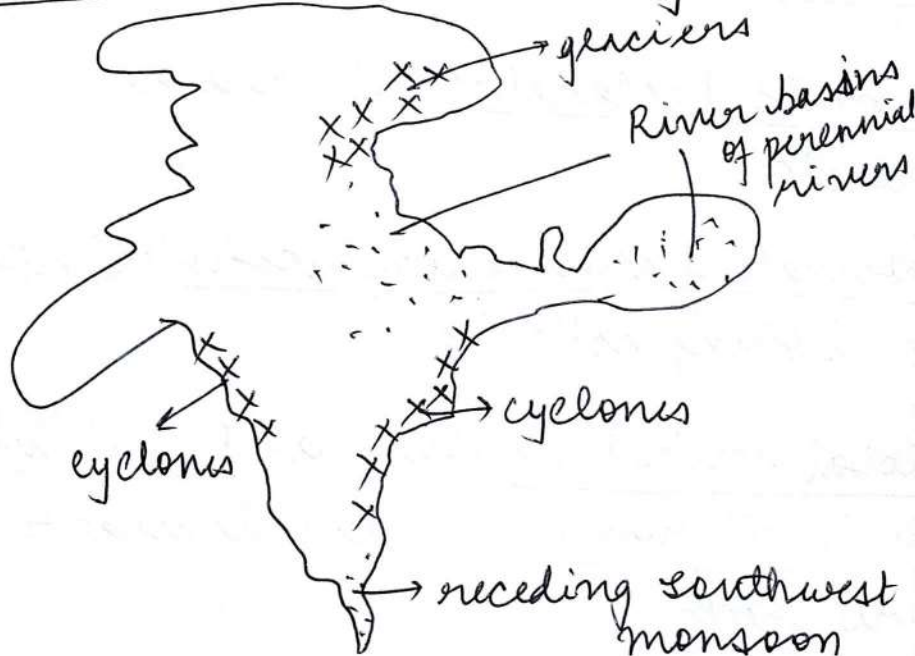 glaciers
River basins
of perennial
rivers
cyclones
cyclones
receding southwest
monsoon